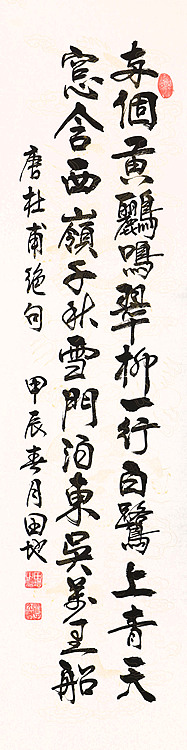 两個黄鸝鳴翠柳一行白鷺上青天
窓含西嶺千秋雪門泊東吳萬里船
唐杜甫絕句 甲辰春月田地